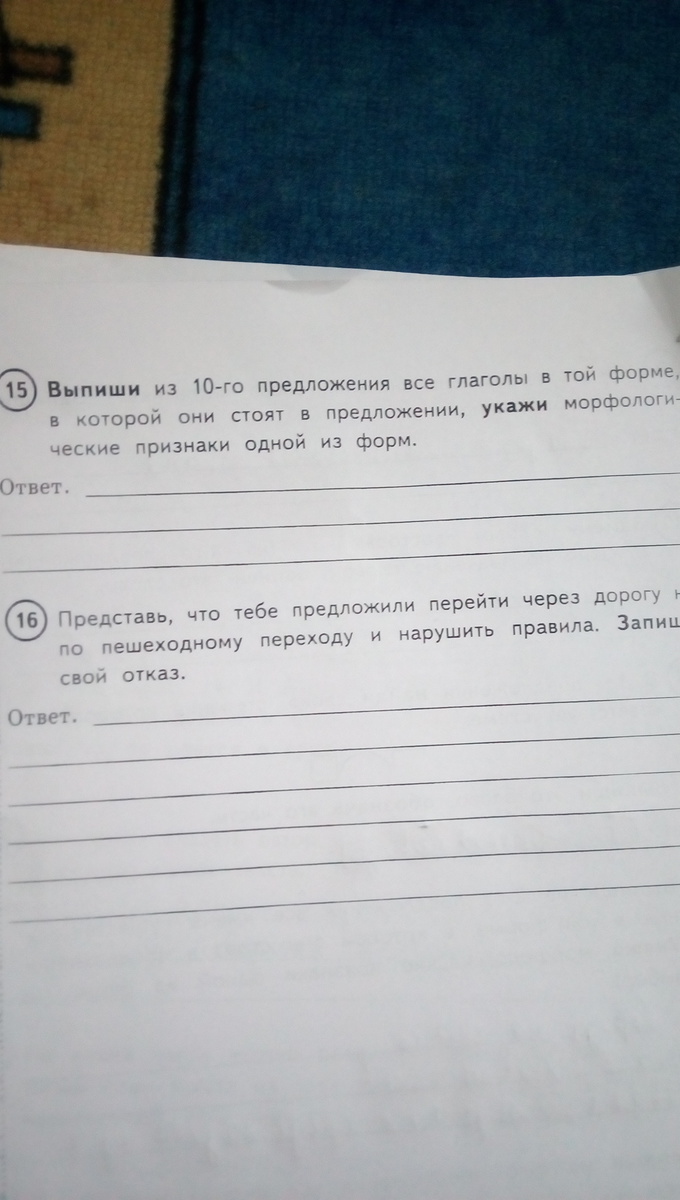 15 Выпиши из 10-го предложения все глаголы в той форме,
в которой они стоят в предложении, укажи морфологи-
ческие признаки одной из форм.
Ответ.
16 Представь, что тебе предложили перейти через дорогу
по пешеходному переходу и нарушить правила.
свой отказ.
Ответ.